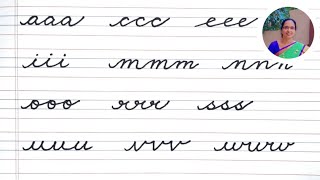 aaa ccc eee
iii mmm nnn
ooo rrr sss
uuu vvv www